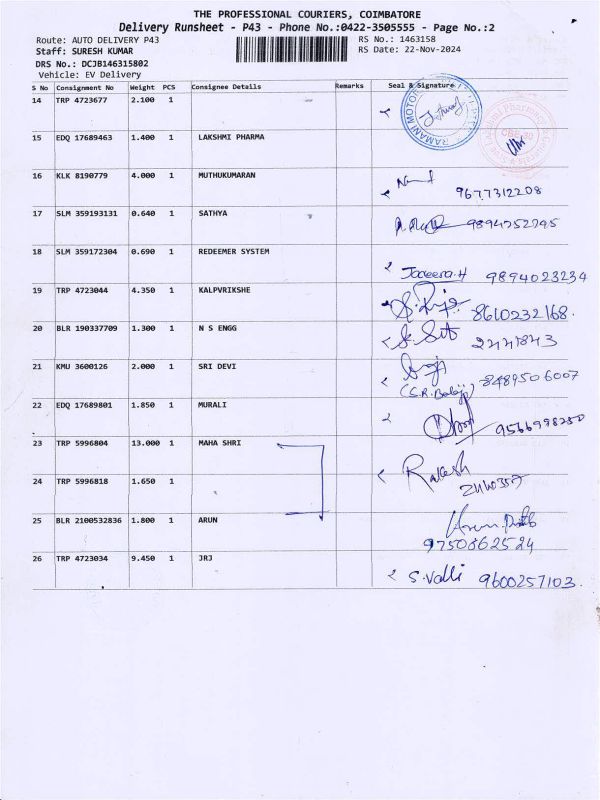 THE PROFESSIONAL COURIERS, COIMBATORE
Delivery Runsheet - P43 - Phone No.:0422-3505555 - Page No.:2
Route: AUTO DELIVERY P43 RS No.: 1463158
Staff: SURESH KUMAR RS Date: 22-Nov-2024
DRS No.: DCJB146315802
Vehicle: EV Delivery
S No Consignment No Weight PCS Consignee Details Remarks Seal & Signature
14 TRP 4723677 2.100 1
15 EDQ 17689463 1.400 1 LAKSHMI PHARMA
16 KLK 8190779 4.000 1 MUTHUKUMARAN
9677312208
17 SLM 359193131 0.640 1 SATHYA
9894252795
18 SLM 359172304 0.690 1 REDEEMER SYSTEM
Jaseera.H 9894023234
19 TRP 4723044 4.350 1 KALPVRIKSHE
8610232168.
20 BLR 190337709 1.300 1 N S ENGG
21 KMU 3600126 2.000 1 SRI DEVI
(S.R. Balaji) 8489506007
22 EDQ 17689801 1.850 1 MURALI
9566998250
23 TRP 5996804 13.000 1 MAHA SHRI
Rakesh
24 TRP 5996818 1.650 1
25 BLR 2100532836 1.800 1 ARUN
9750862524
26 TRP 4723034 9.450 1 JRJ
S.Valli 9600257103.